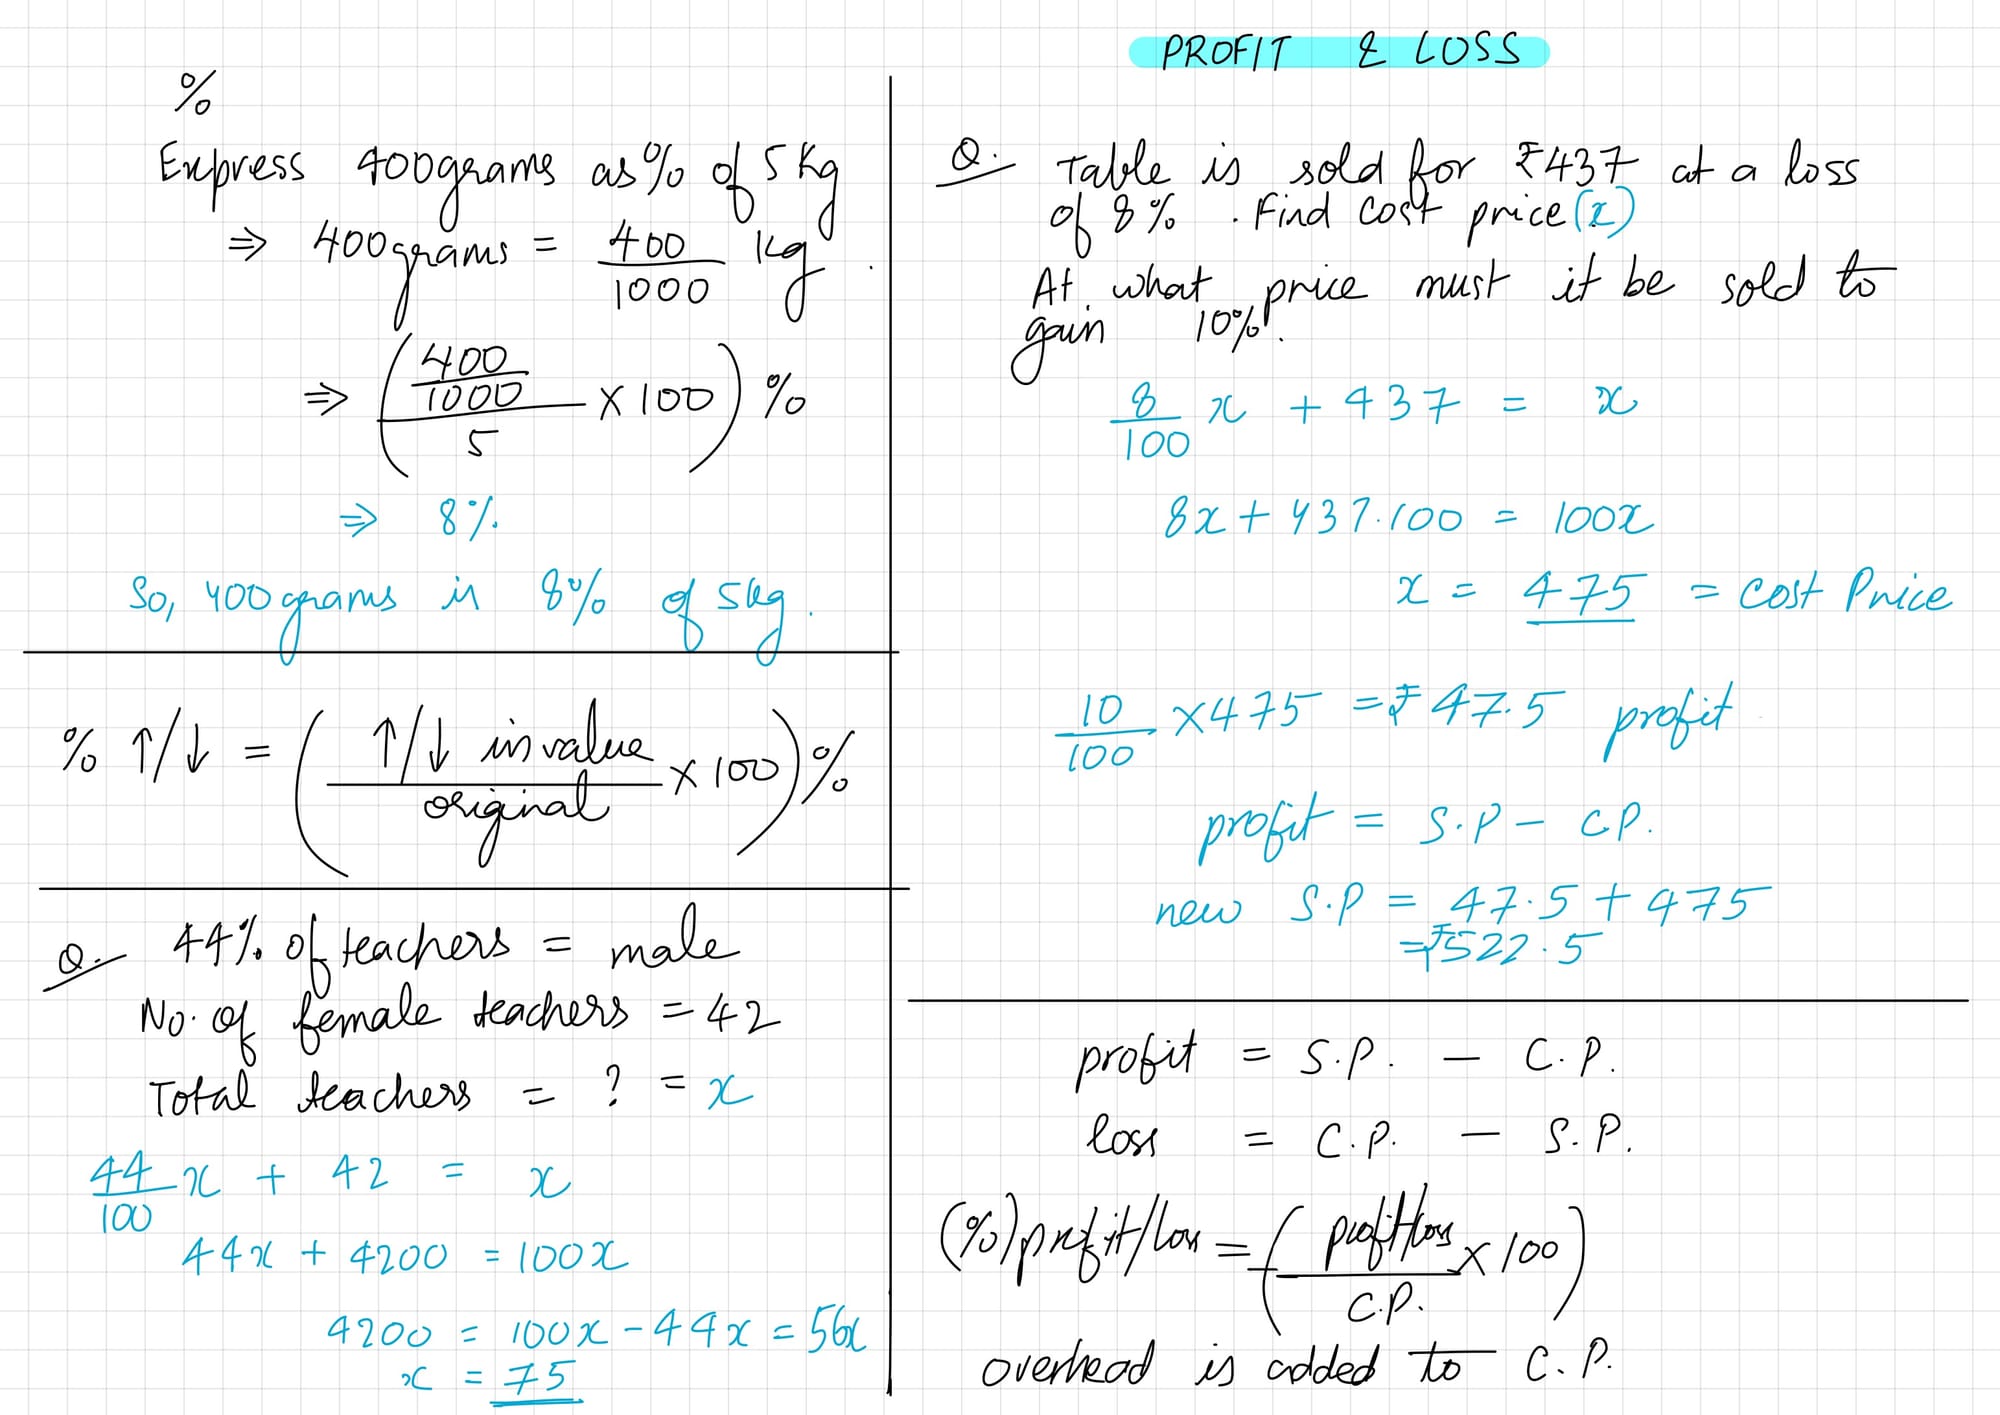 %
Express 400grams as % of 5 Kg
⇒ 400grams = 400/1000 kg.
⇒ ((400/1000)/5 × 100) %
⇒ 8%
So, 400grams is 8% of 5kg.
% ↑/↓ = (↑/↓ in value/original × 100) %
Q. 44% of teachers = male
No. of female teachers = 42
Total teachers = ? = x
44/100 x + 42 = x
44x + 4200 = 100x
4200 = 100x - 44x = 56x
x = 75
PROFIT & LOSS
Q. Table is sold for ₹437 at a loss
of 8%. Find cost price (x)
At what price must it be sold to
gain 10%.
8/100 x + 437 = x
8x + 437.100 = 100x
x = 475 = Cost Price
10/100 × 475 = ₹47.5 profit
profit = S.P - C.P.
new S.P = 47.5 + 475
= ₹522.5
profit = S.P. - C.P.
loss = C.P. - S.P.
(%) profit/loss = (profit/loss/C.P. × 100)
overhead is added to C.P.